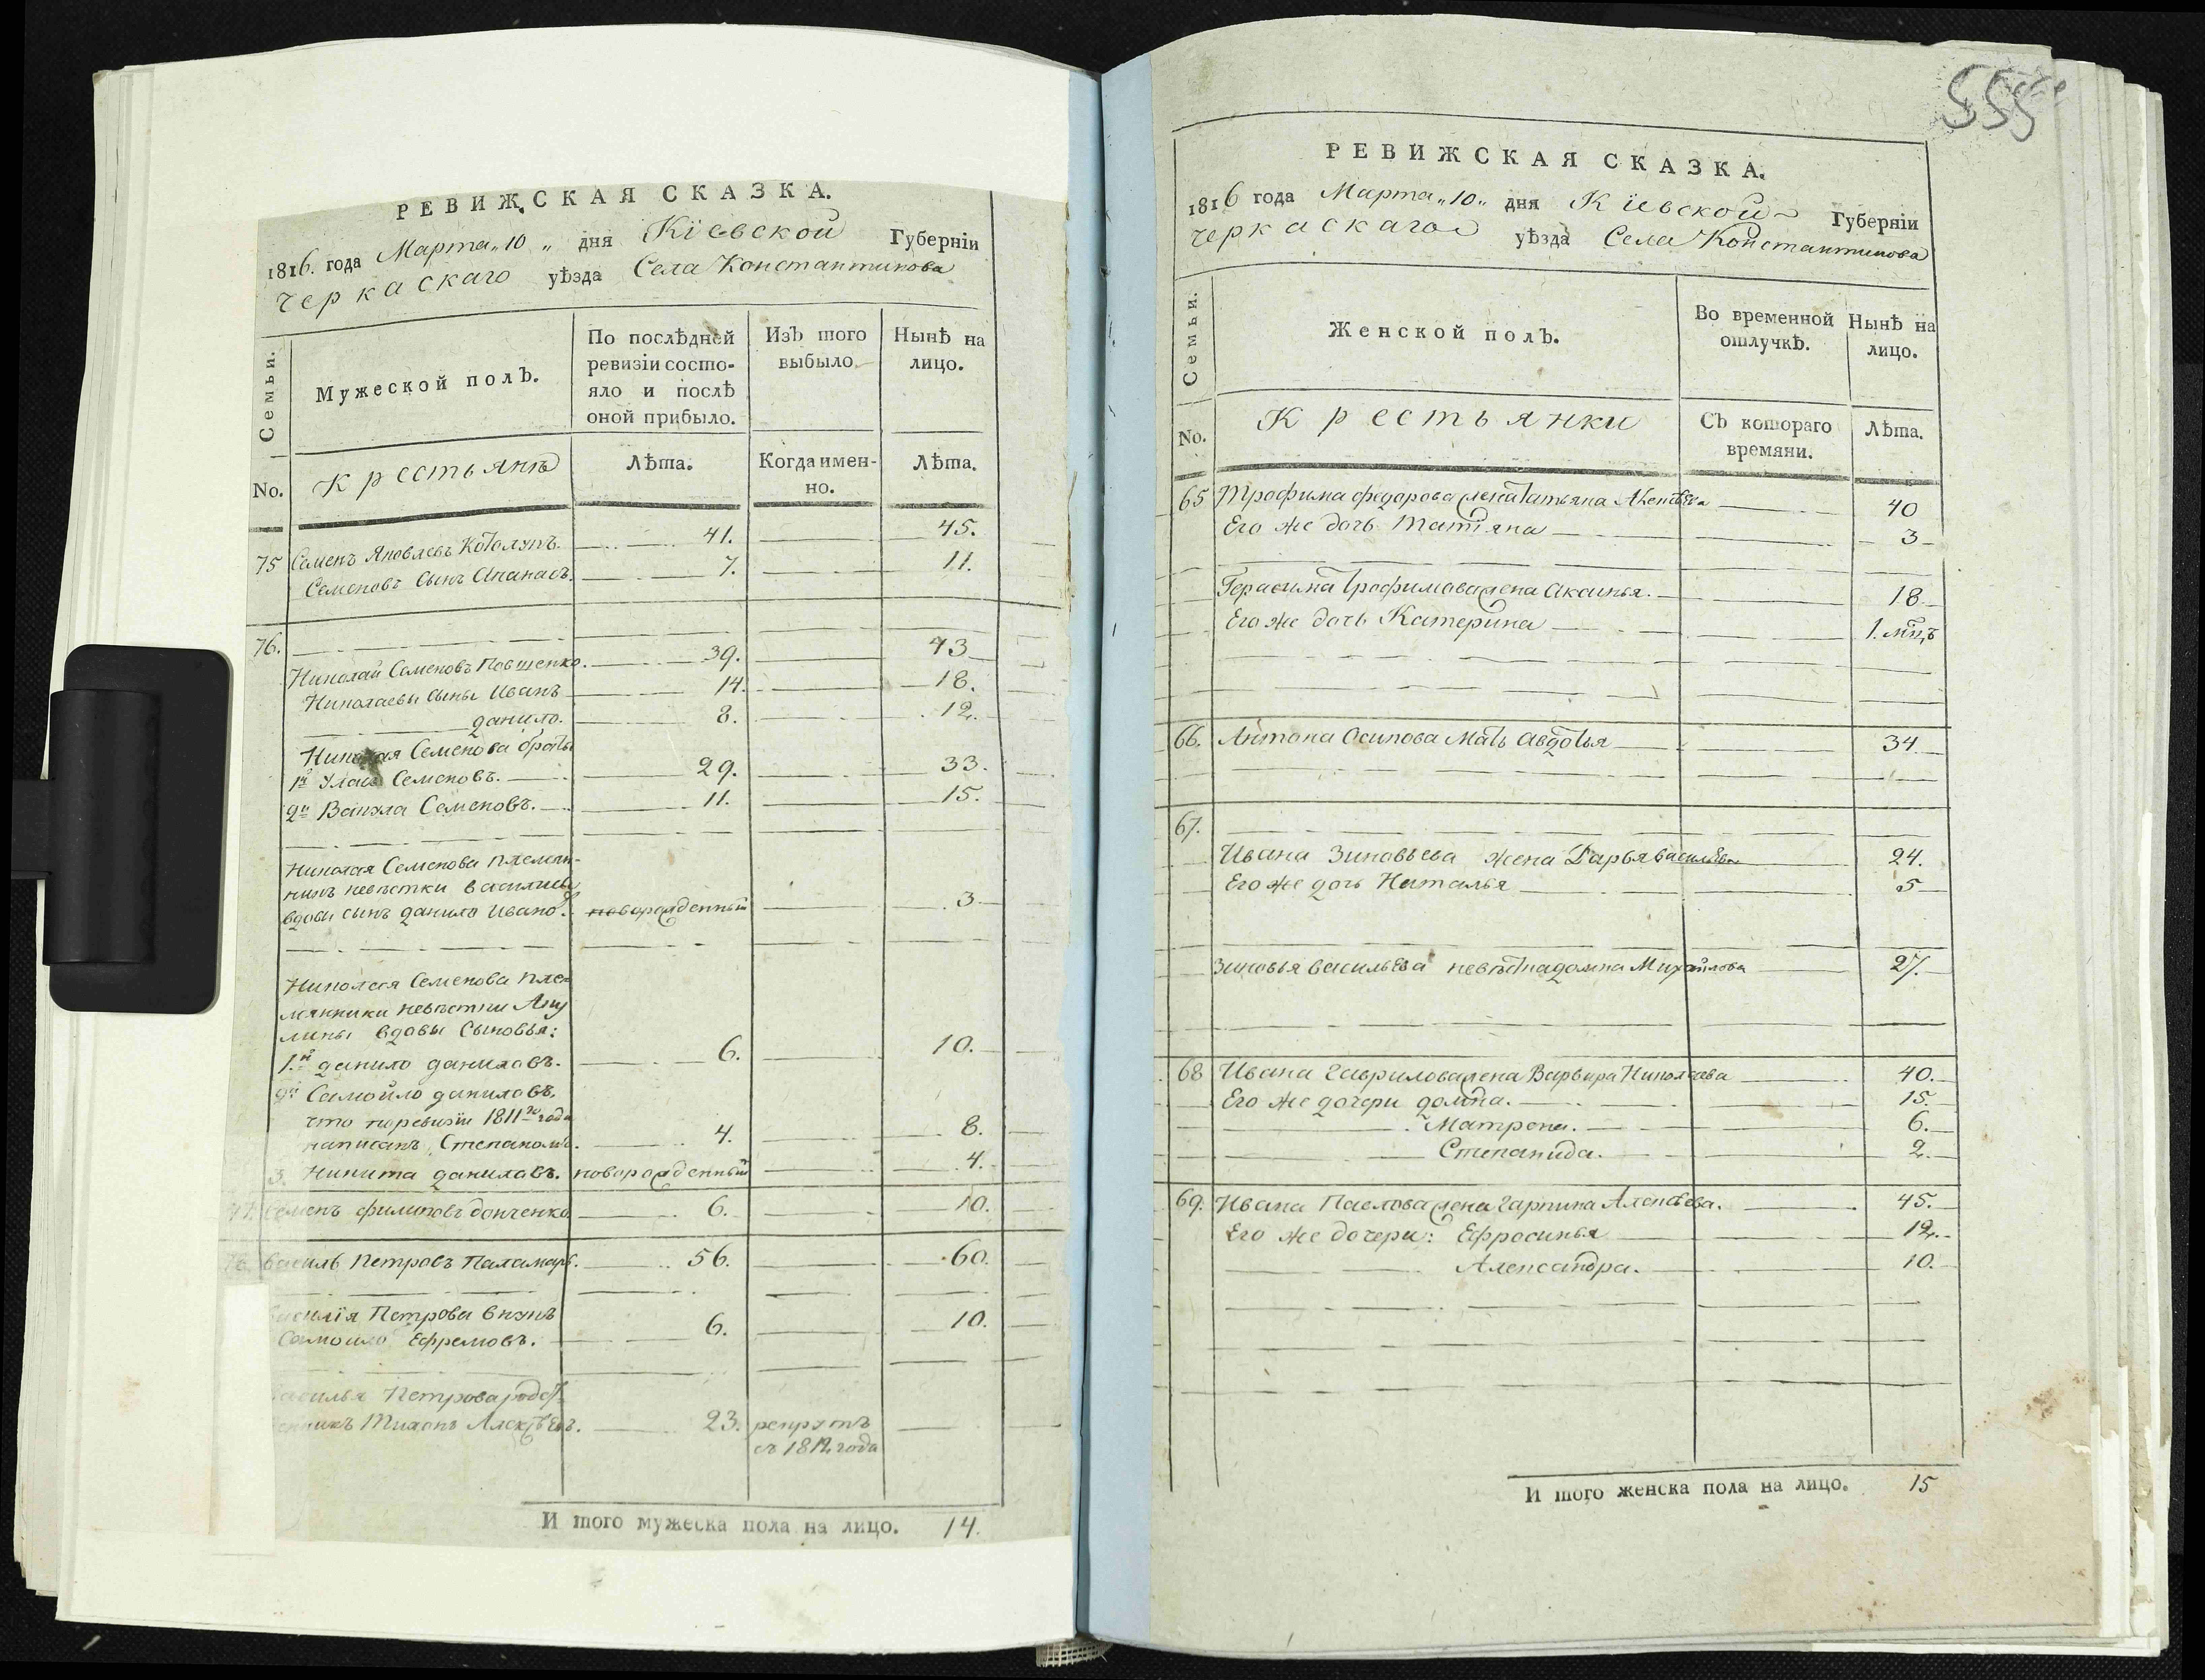 РЕВИЖСКАЯ СКАЗКА.
1816. года Марта „10„ дня Кіевской Губерніи
Черкаскаго уѣзда Села Константинова
Семьи.
Мужеской полъ.
По послѣдней ревизіи состо-
яло и послѣ
оной прибыло.
Изъ того
выбыло.
Нынѣ на
лицо.
No.
Крестьянѣ
Лѣта.
Когда имен-
но.
Лѣта.
75 Семенъ Яковлевъ 41. 45.
Семеновъ Сынъ Апанасъ. 7. 11.
76.
Николай Семеновъ 39. 43
Николаевы Сыны Иванъ 14. 18.
данило. 8. 12.
Николая Семенова браты
1й Улаъ Семеновъ. 29. 33.
2й Вакула Семеновъ. 11. 15.
Николая Семенова племян-
никъ невѣстки василисы
вдовы сынъ данило Ивано. новорожденный 3
Николая Семенова пле-
мянники невѣстки Аку
лины вдовы Сыновья:
1.й данило даниловъ. 6. 10.
2й Самойло даниловъ,
что поревизіи 1811го года
написанъ Степаномъ. 4. 8.
3. Никита даниловъ. новорожденный 4.
77. Семенъ филиповъ донченко 6. 10.
78. Василь Петровъ Паламарь. 56. 60.
Василія Петрова внукъ
Самойло Ефремовъ. 6. 10.
Василья Петрова родст-
венникъ Тихонъ Алексѣевъ. 23. рекрутъ
съ 1812 года
И того мужеска пола на лицо. 14.
555
РЕВИЖСКАЯ СКАЗКА.
1816 года Марта „10„ дня Кіевской Губерніи
Черкаскаго уѣзда Села Константинова
Семьи.
Женской полъ.
Во временной
отлучкѣ.
Нынѣ на
лицо.
No.
Крестьянки
Съ котораго
времяни.
Лѣта.
65 Трофима федорова жена Татьяна 40
Его же дочь Татіяна 3
Герасима Трофимова жена Аксинья. 18
Его же дочь Катерина 1. мцъ
66. Антона Осипова Мать Авдотья 34
67.
Ивана Зиновьева жена Дарья васильева 24.
Его же дочь Наталья 5
Зиновья васильева невѣстка домна Михайлова 27.
68 Ивана Гаврилова жена Варвара Николаева 40.
Его же дочери домна. 15.
Матрона. 6.
Степанида. 2.
69. Ивана Павлова жена Гарпина Алексѣева. 45.
Его же дочери: Ефросинья 12.
Александра. 10.
И того женска пола на лицо. 15